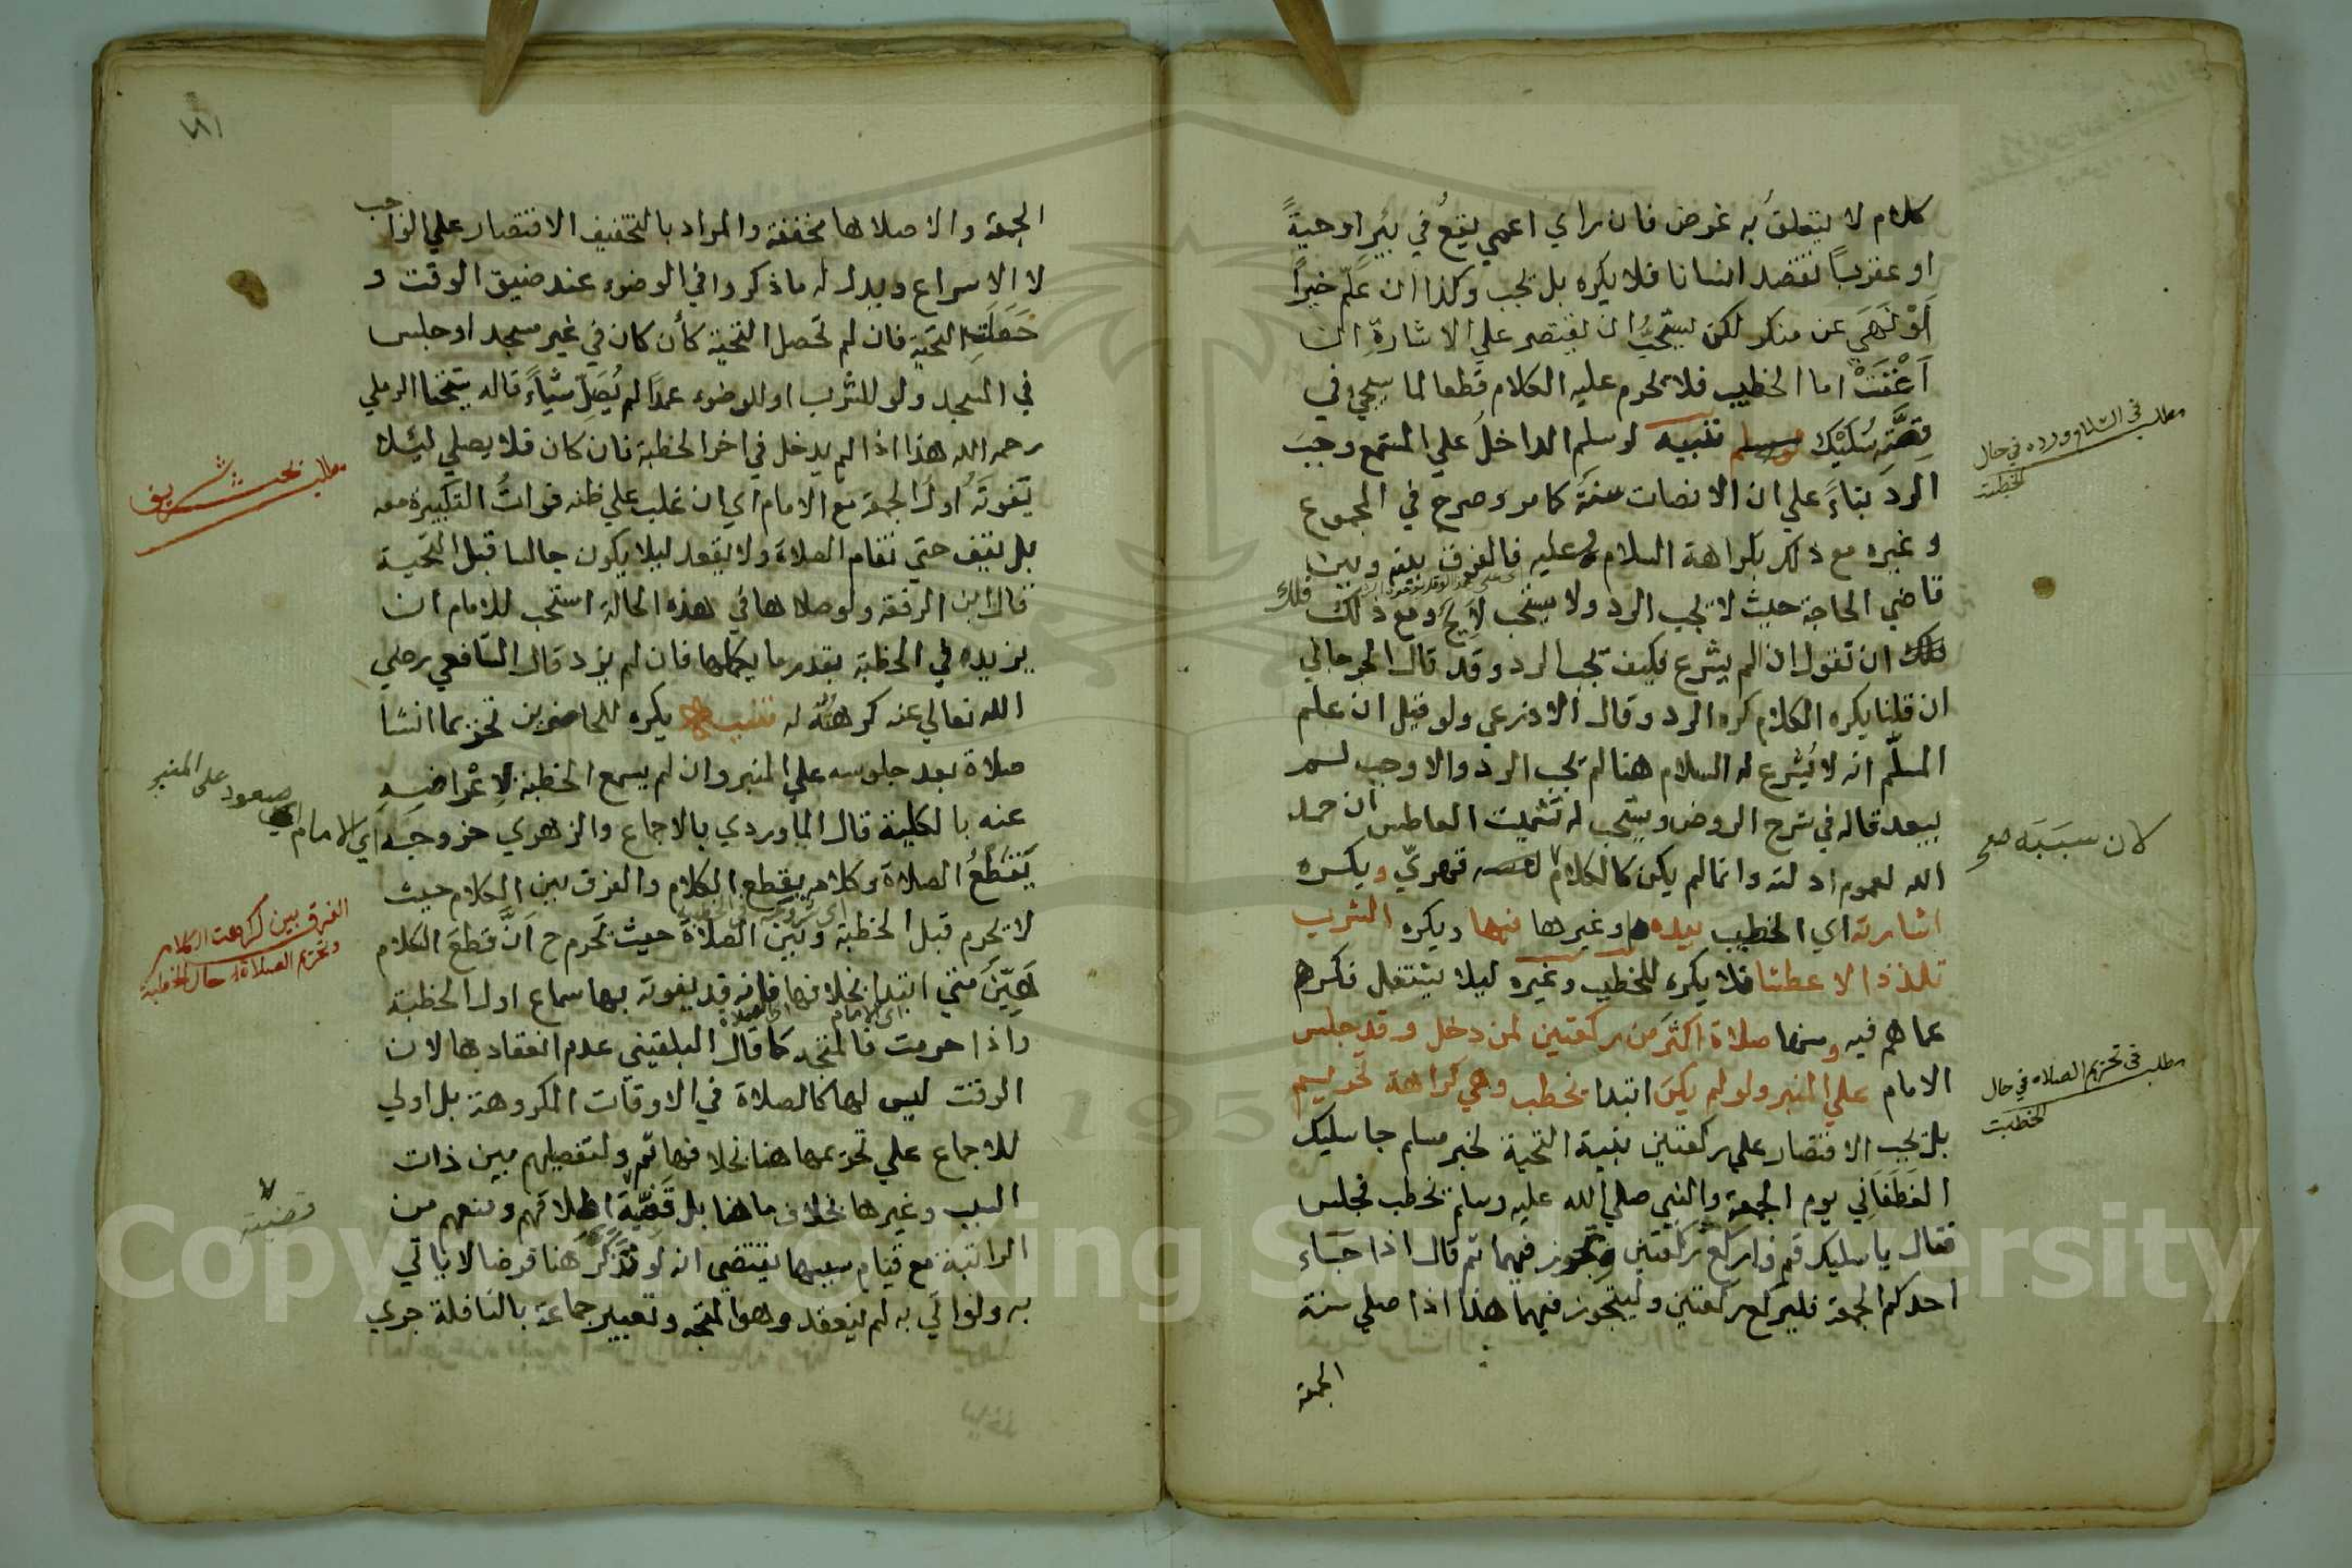 كلام لا يتعلق به غرض فان راي اعمي يقع في بئر او حيةً
او عقربًا تقصد انسانا فلا يكره بل تجب وكذا ان علّم خيرًا
اَوْ نَهَي عن منكر لكن يستحبُّ ان يقتصر علي الاشارة ان
اَغْنَتْ اما الخطيب فلا تحرم عليه الكلام قطعا لما سيجي في
قصَّةِ سُلَيْك تنبيه لو سلم الداخل علي المستمع وجبَ
الرد بناءً علي ان الانصات سنةَ كما مر وصرح في المجموع
وغيره مع ذلك بكراهة السلام عليه فالفرق بينه وبين
قاضي الحاجة حيث لا تجب الرد ولا يستحب لايح ومع ذلك فلك
ان تقول ان لم يشرع فكيف تجب الرد وقد قال الجرجاني
ان قلنا يكره الكلام كره الرد وقال الاذرعي ولو قيل ان علم
المسلّم انه لا يُشرع له السلام هنا لم تجب الرد والاوجب لم
يبعد قاله في شرح الروض ويستحب له تشميت العاطس ان حمد
الله لعموم ادلته وانما لم يكن كالكلام قهريّ ويكره
اشارته اي الخطيب بيده او غيرها فيها ويكره الشرب
تلذذا لا عطشا فلا يكره للخطيب وغيره ليلا يشتغل فكرهم
عما هم فيه ومنها صلاة اكثر من ركعتين لمن دخل وقد جلس
الامام علي المنبر ولو لم يكن ابتدا يخطب وهي كراهة تحريم
بل تجب الاقتصار علي ركعتين بنية التحية لخبر مسلم جا سليك
الغَطَفَاني يوم الجمعة والنبي صلي الله عليه وسلم تخطب فجلس
فقال يا سليك قم فاركع ركعتين وتجوز فيهما ثم قال اذا جَاء
احدكم الجمعة فليركع ركعتين وليتجوز فيهما هذا اذا صلي سنة
الجمعة
مطلب في السلام ورده في حال
الخطبة
كان سببَه صح
مطلب في تحريم الصلاه في حال
الخطبت
١٨١
الجمعة والا صلاها مخففة والمراد بالتخفيف الاقتصار علي الواجب
لا الاسراع ويدل له ما ذكروا في الوضوء عند ضيق الوقت و
حَصَلَتِ التحية فان لم تحصل التحية كأن كان في غير مسجد او جلس
في المسجد ولو للشرب او للوضوء عمداً لم يُصَلّ شيأً قاله شيخنا الرملي
رحمه الله هذا اذا لم يدخل في اخر الخطبة فان كان فلا يصلي ليئلا
تفوتَه اولَ الجمعة مع الامام اي ان غلب علي ظنه فواتُ التكبيرة معه
بل يقف حتي تقام الصلاة ولا يقعد ليلا يكون جالسا قبل التحية
قال ابن الرفعة ولو صلاها في هذه الحالة استحب للامام ان
يزيده في الخطبة بقدر ما يكملها فان لم يزد قال الشافعي رضي
الله تعالي عنه كرهتُه له تنبيه يكره للحاضرين تحريما انشا
صلاة بعد جلوسه علي المنبر وان لم يسمع الخطبة لاِعْراضِهِ
عنه بالكلية قال الماوردي بالاجماع والزهري خروجَه
يَقطَعُ الصلاةَ وكلامه يقطع الكلام والفرق بين الكلام حيث
لا تحرم قبل الخطبة وبَيْنَ الصلاة حيث تَحرم ح اَنَّ قطعَ الكلام
هَيّنَ متي ابتدا بخلافها فانه قد يفوته بها سماع اول الخطبة
واذا حرمت فالمتجه كما قال البلقيني عدم انعقادها لان
الوقت ليس لها كالصلاة في الاوقات المكروهة بل اولي
للاجماع علي تحريمها هنا بخلافها ثَم ولتفصيلهم بين ذات
السبب وغيرها بخلاف ما هنا بل قَضِيّة اطلاقهم ومنعهم من
الراتبة مع قيام سببها يقتضي انه لو تَذَكَّرَ هَنا فرضا لا ياتي
به ولو اتي به لم ينعقد وهو المتجه وتعبير جماعة بالنافلة جري
مطلب بحث شريف
اي الامام اي صعود علي المنبر
الفرق بين كرهت الكلام
وتحريم الصلاة حال الخطبة
قضيته
Copyright © King Saud University
195